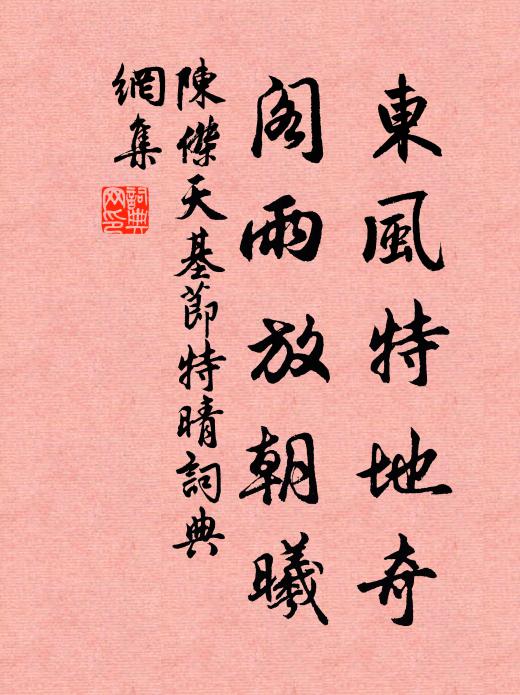 東風特地奇
閣雨放朝曦
陳傑天基節特晴詞典
網集
詞典
网印